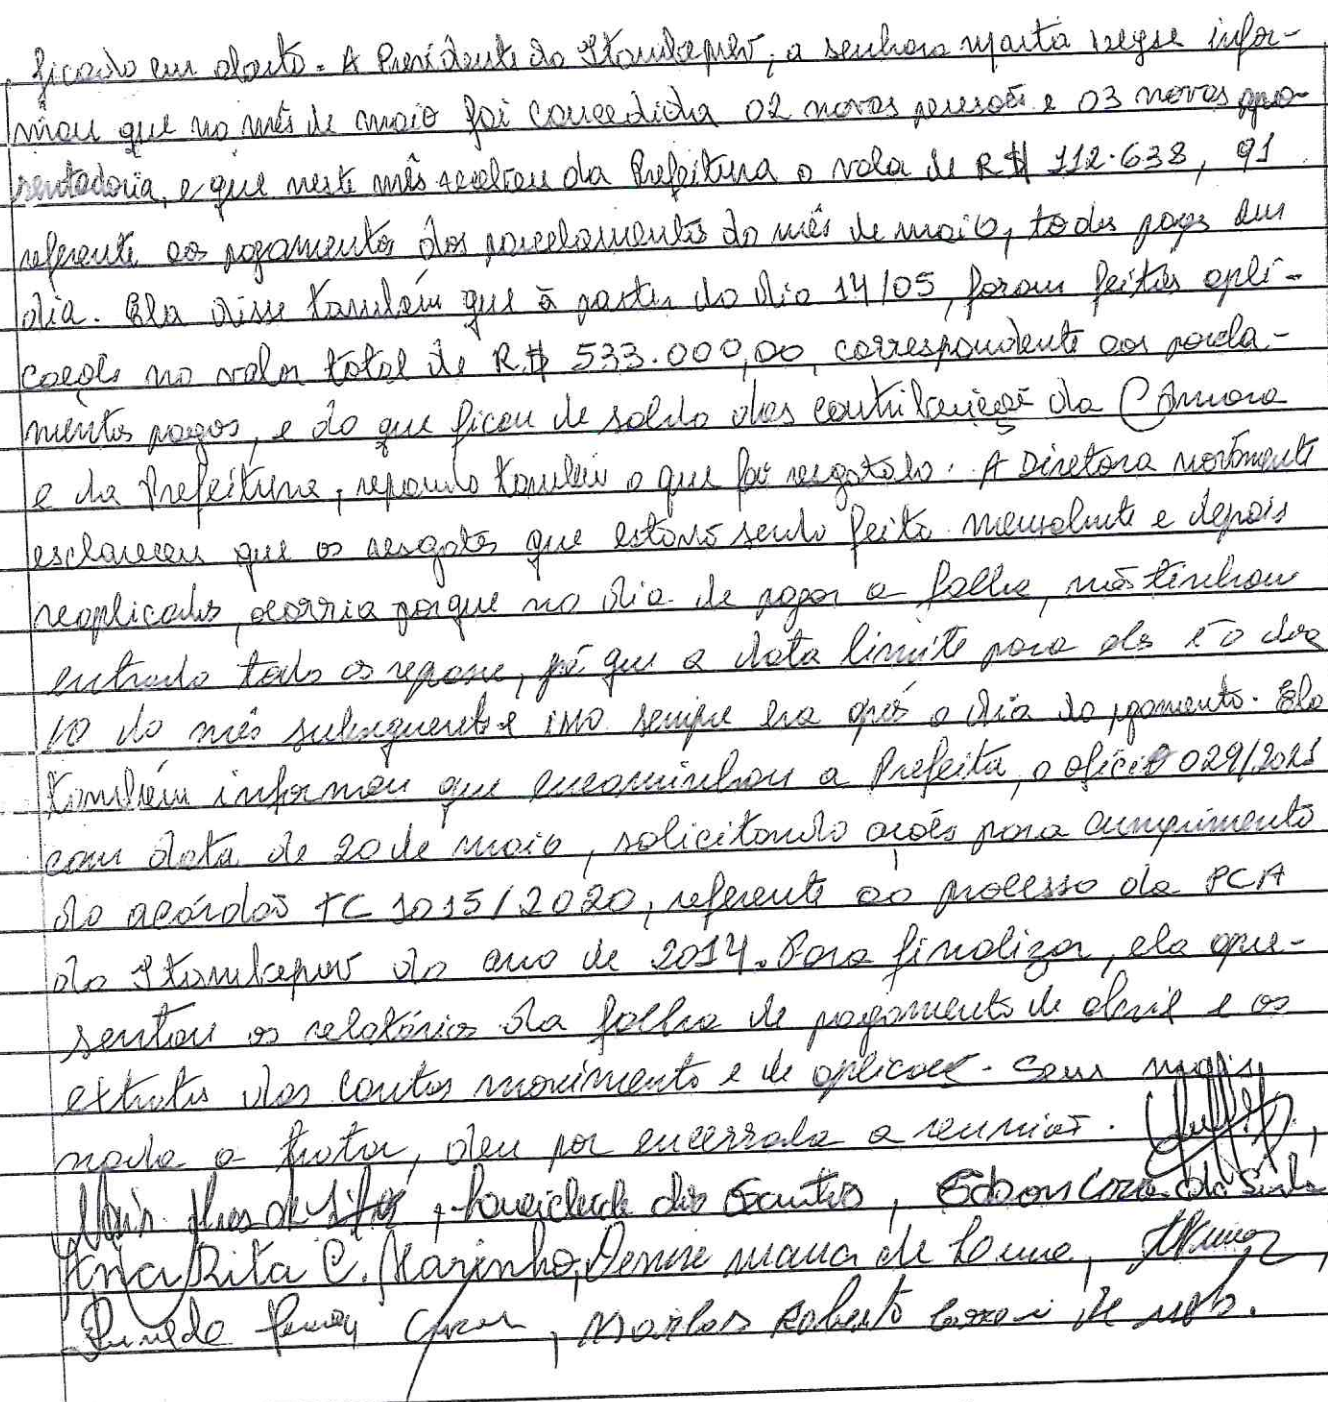 ficando em aberto. A Presidente do Itambeprev, a senhora Marta infor-
mou que no mês de maio foi concedida 02 novas pensões e 03 novas apo-
sentadoria, e que neste mês recebeu da Prefeitura o valor de R$ 112.638,91
referente aos pagamentos dos parcelamentos do mês de maio, todos pagos em
dia. Ela disse também que à partir do dia 14/05, foram feitas apli-
cações no valor total de R$ 533.000,00, correspondente aos parcela-
mentos pagos, e do que ficou de saldo das contribuições da Câmara
e da Prefeitura, repondo também o que foi resgatado. A Diretora novamente
esclareceu que os resgates que estavam sendo feito mensalmente e depois
reaplicados, ocorria porque no dia de pagar a folha, não tinham
entrado todos os repasse, já que a data limite para eles é o dia
10 do mês subsequente e isso sempre era após o dia do pgamento. Ela
também informou que encaminhou a Prefeita, o ofício 029/2021
com data de 20 de maio, solicitando ações para cumprimento
do acórdão TC 1015/2020, referente ao processo da PCA
do Itambeprev do ano de 2014. Para finalizar, ela apre-
sentou os relatórios da folha de pagamento de abril e os
extratos das contas movimento e de aplicações. Sem mais
nada a tratar, deu por encerrada a reunião.
dos Santos, Edson da Silva
Ana Rita C. Marinho, Denise Maria de
, Marlos Roberto de